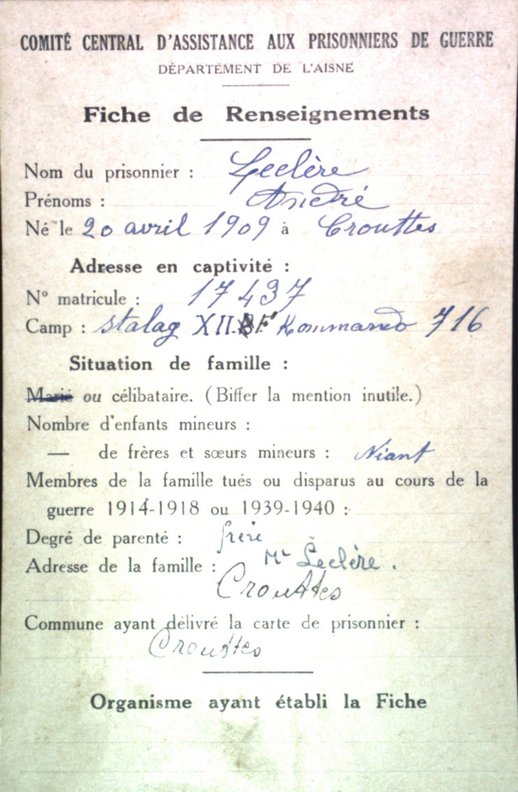 COMITÉ CENTRAL D'ASSISTANCE AUX PRISONNIERS DE GUERRE
DÉPARTEMENT DE L'AISNE
Fiche de Renseignements
Nom du prisonnier : Leclère
Prénoms : André
Né le 20 avril 1909 à Crouttes
Adresse en captivité :
N° matricule : 17437
Camp : Stalag XII F Koumando 716
Situation de famille :
Marié ou célibataire. (Biffer la mention inutile.)
Nombre d'enfants mineurs :
— de frères et sœurs mineurs : Niant
Membres de la famille tués ou disparus au cours de la
guerre 1914-1918 ou 1939-1940 :
Degré de parenté : frère
Adresse de la famille : Mr Leclère.
Crouttes
Commune ayant délivré la carte de prisonnier :
Crouttes
Organisme ayant établi la Fiche